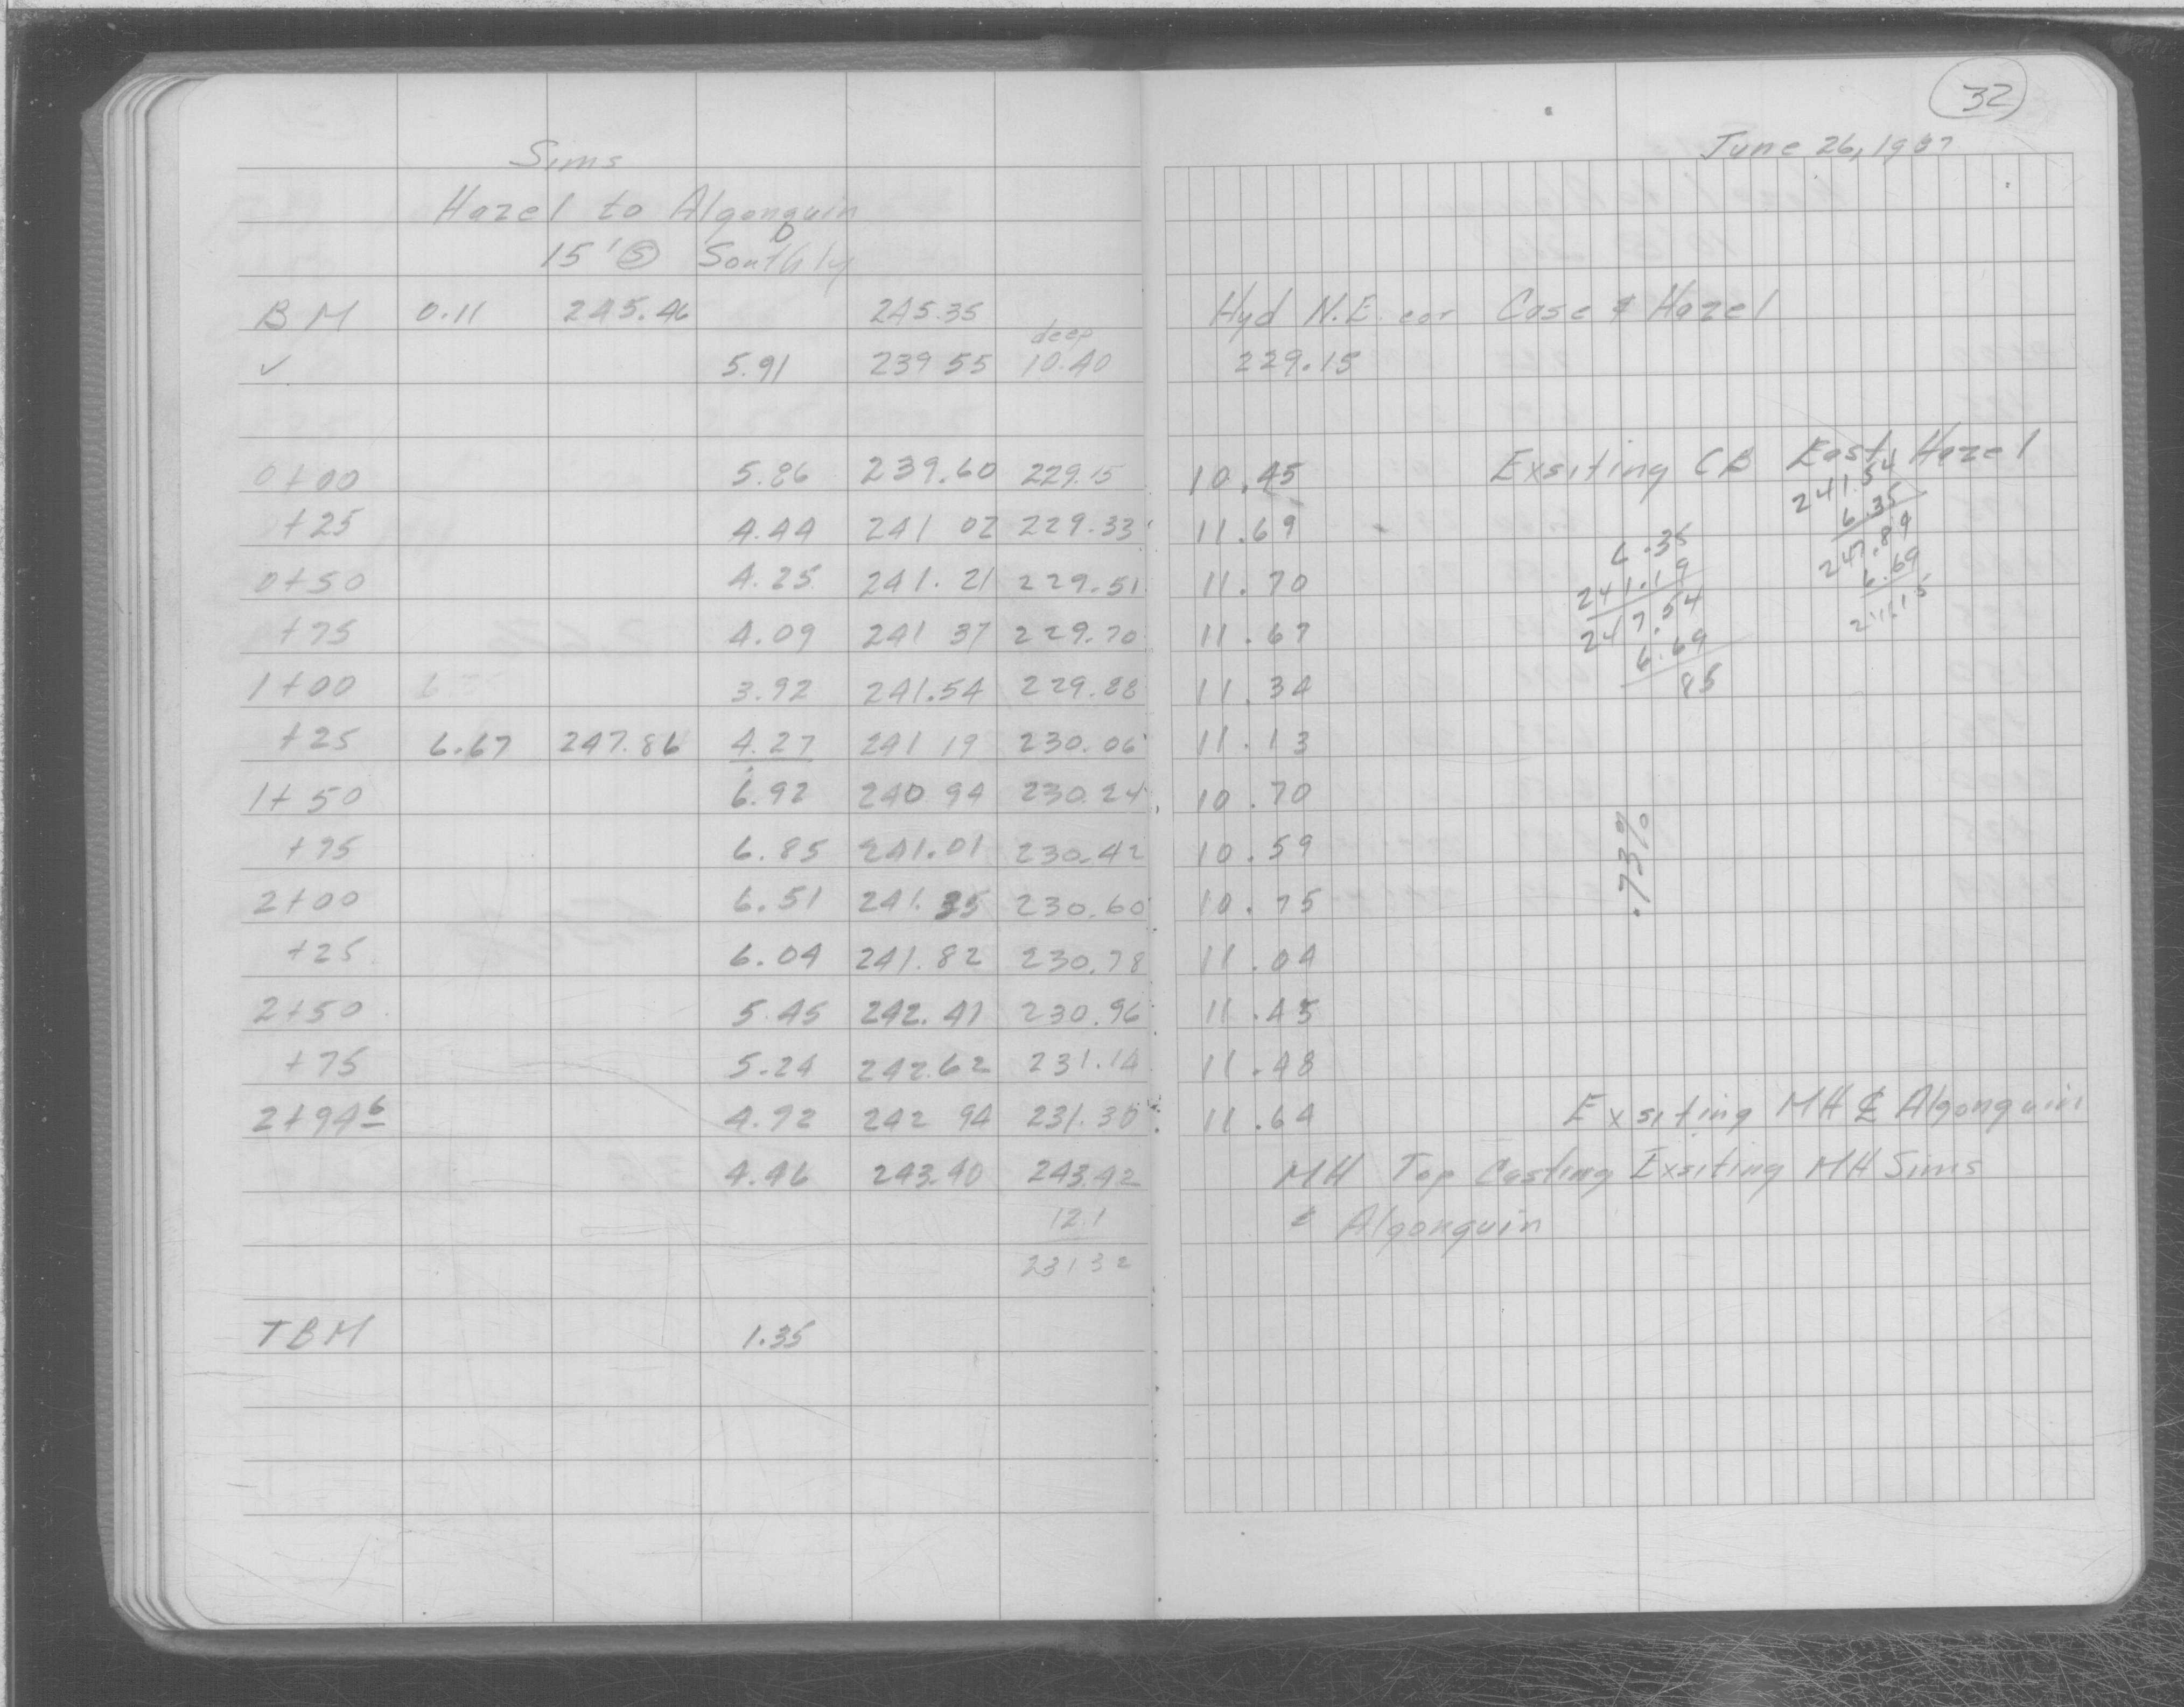 32
June 26, 1967
Sims
Hazel to Algonquin
15' Ⓢ Southly
BM 0.11 245.46 245.35 Hyd N.E. cor Case & Hazel
deep
✓ 5.91 239 55 10.40 229.15
0+00 5.86 239.60 229.15 10.45 Exsiting CB East Hazel
+25 4.44 241 02 229.33 11.69
0+50 4.25 241.21 229.51 11.70
+75 4.09 241 37 229.70 11.67
1+00 3.92 241.54 229.88 11.34
+25 6.67 247.86 4.27 241 19 230.06 11.13
1+50 6.92 240 94 230.24 10.70
+75 6.85 241.01 230.42 10.59
2+00 6.51 241.35 230.60 10.75
+25 6.04 241.82 230.78 11.04
2+50 5.45 242.41 230.96 11.45
+75 5.24 242.62 231.14 11.48
2+94 6 4.92 242 94 231.30 11.64 Exsiting MH ℄ Algonquin
4.46 243.40 243.42 MH Top Casting Exsiting MH Sims
12.1 & Algonquin
231 32
TBM 1.35
241.54
6.35
247.89
6.69
241.15
6.35
241.19
247.54
6.69
85
.73%